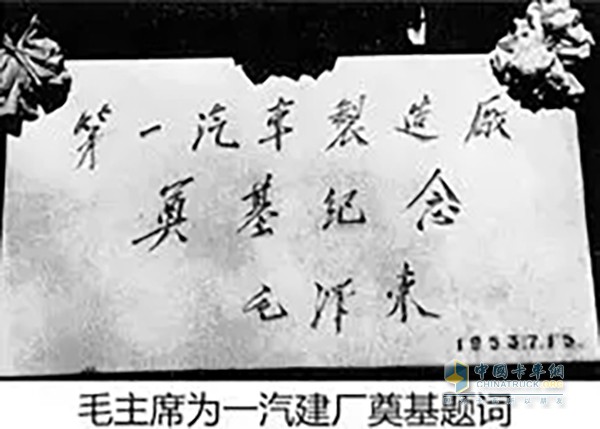 第一汽车製造厰
奠基纪念
毛泽东
1953.7.15.
中国卡车网
CHINATRUCK.ORG
毛主席为一汽建厂奠基题词